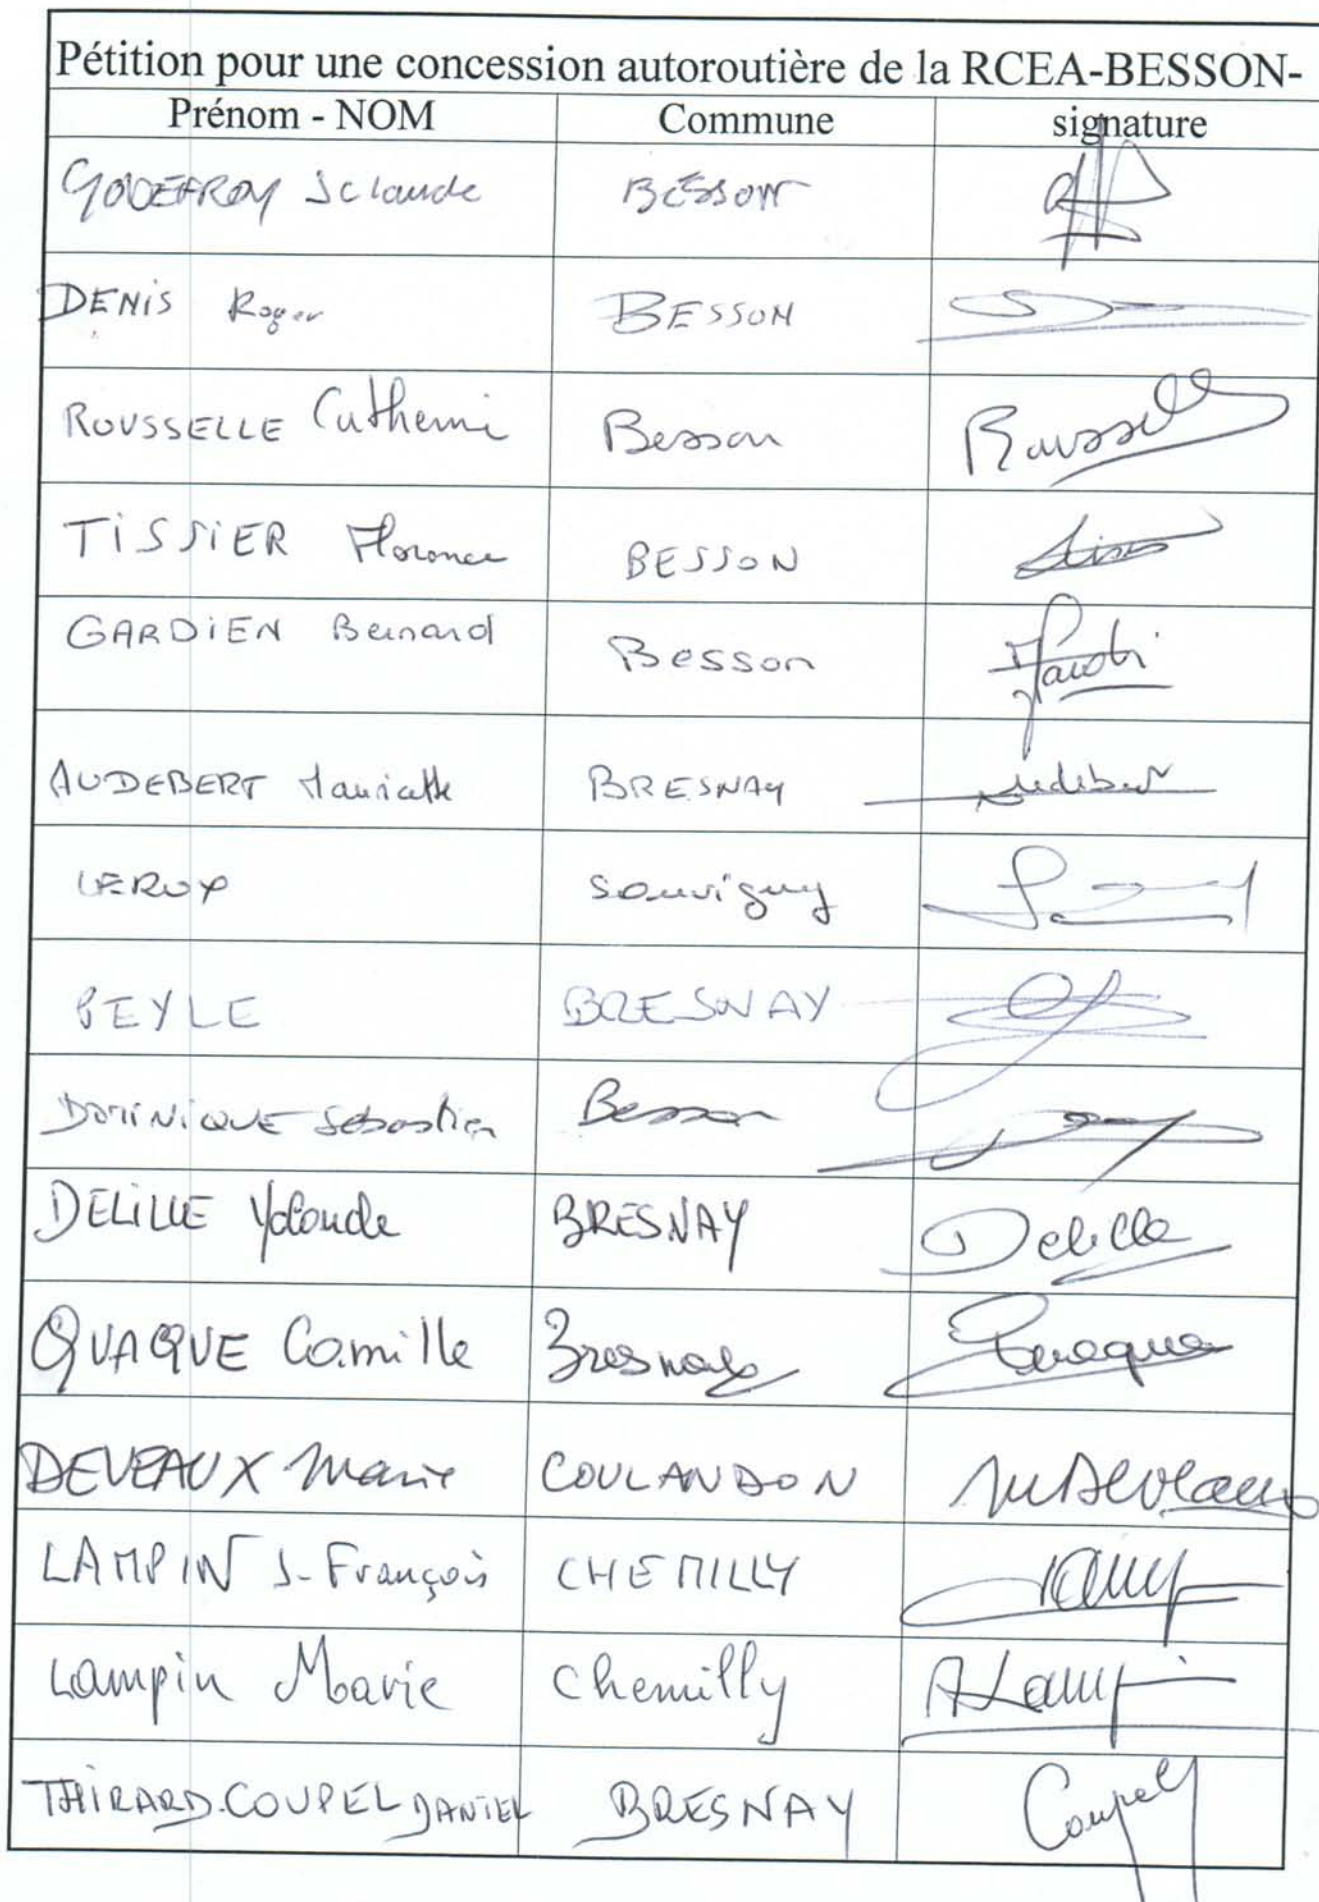 Pétition pour une concession autoroutière de la RCEA-BESSON-
Prénom - NOM Commune signature
GODEFROY JClaude BESSON
DENIS Roger BESSON
ROUSSELLE Catherine Besson Rousselle
TISSIER Florence BESSON
GARDIEN Bernard Besson
AUDEBERT Mauricette BRESNAY Audebert
LEROY Souvigny
BEYLE BRESNAY
DOMINIQUE Sébastien Besson
DELILLE Yolande BRESNAY Delille
QUAQUE Camille Bresnay Quaque
DEVEAUX Marie COULANDON MDeveaux
LAMPIN J-François CHEMILLY
Lampin Marie Chemilly ALampin
THIRARD-COUPEL DANIEL BRESNAY Coupel